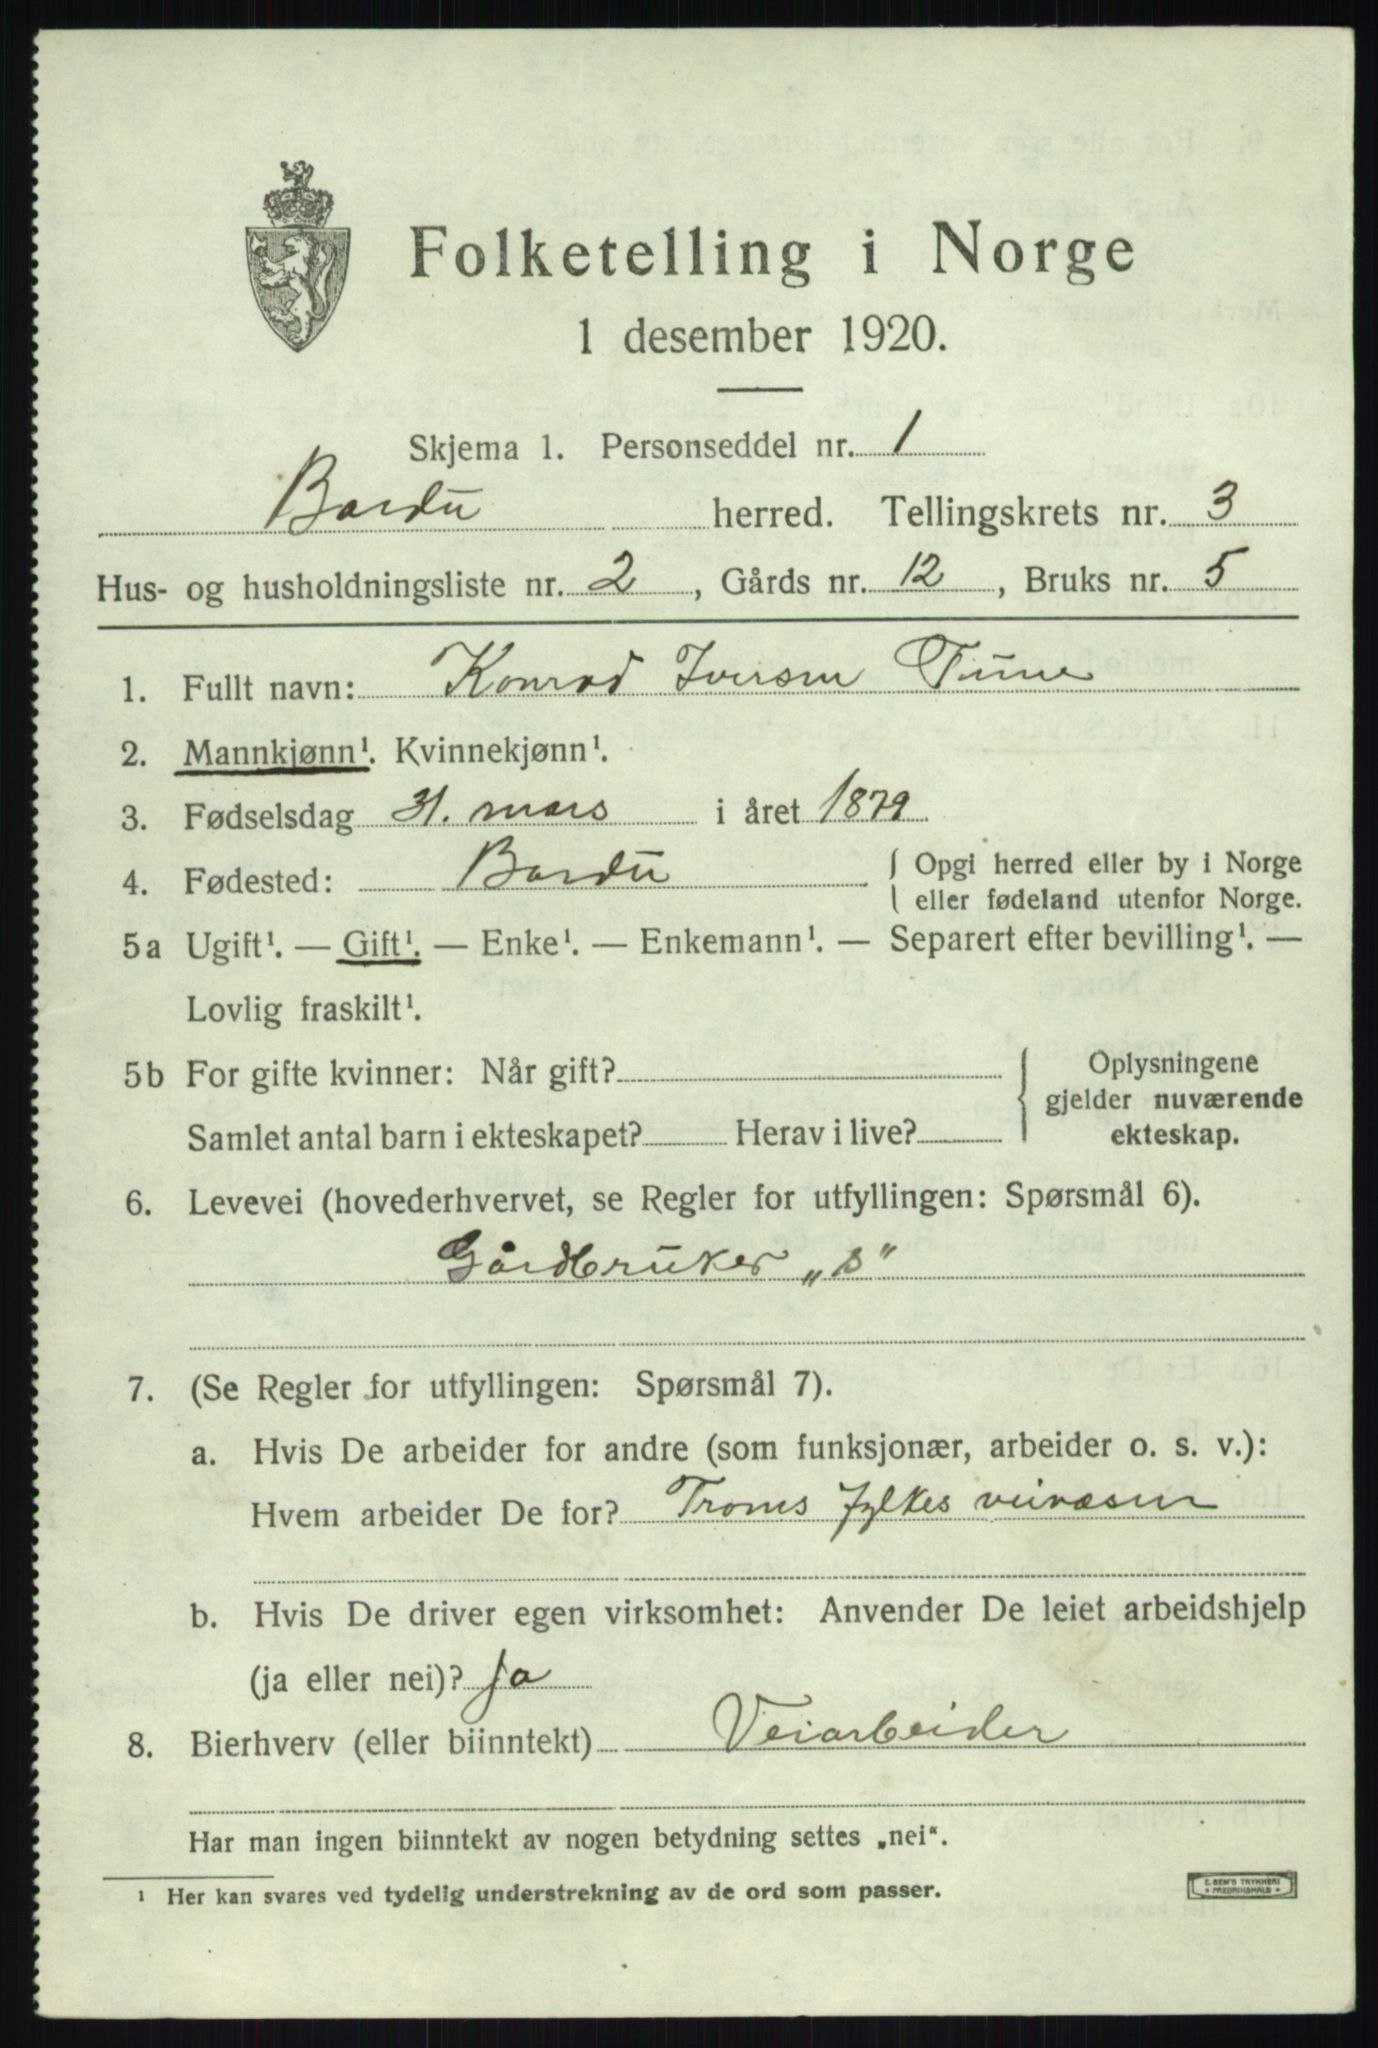 Folketelling i Norge
1 desember 1920.
Skjema 1. Personseddel nr. 1
Bardu herred. Tellingskrets nr. 3
Hus- og husholdningsliste nr. 2, Gårds nr. 12, Bruks nr. 5
1. Fullt navn: Konrad Iversen Tune
2. Mannkjønn¹. Kvinnekjønn¹.
3. Fødselsdag 31. mars i året 1879
4. Fødested: Bardu { Opgi herred eller by i Norge
eller fødeland utenfor Norge.
5a Ugift¹. — Gift¹. — Enke¹. — Enkemann¹. — Separert efter bevilling¹. —
Lovlig fraskilt¹.
5b For gifte kvinner: Når gift? { Oplysningene
gjelder nuværende
Samlet antal barn i ekteskapet? Herav i live? ekteskap.
6. Levevei (hovederhvervet, se Regler for utfyllingen: Spørsmål 6).
Gårdbruker „S"
7. (Se Regler for utfyllingen: Spørsmål 7).
a. Hvis De arbeider for andre (som funksjonær, arbeider o. s. v.):
Hvem arbeider De for? Troms fylkes veivæsen
b. Hvis De driver egen virksomhet: Anvender De leiet arbeidshjelp
(ja eller nei)? ja
8. Bierhverv (eller biinntekt) Veiarbeider
Har man ingen biinntekt av nogen betydning settes „nei“.
¹ Her kan svares ved tydelig understrekning av de ord som passer.
E. SEM'S TRYKKERI
FREDRIKSHALD